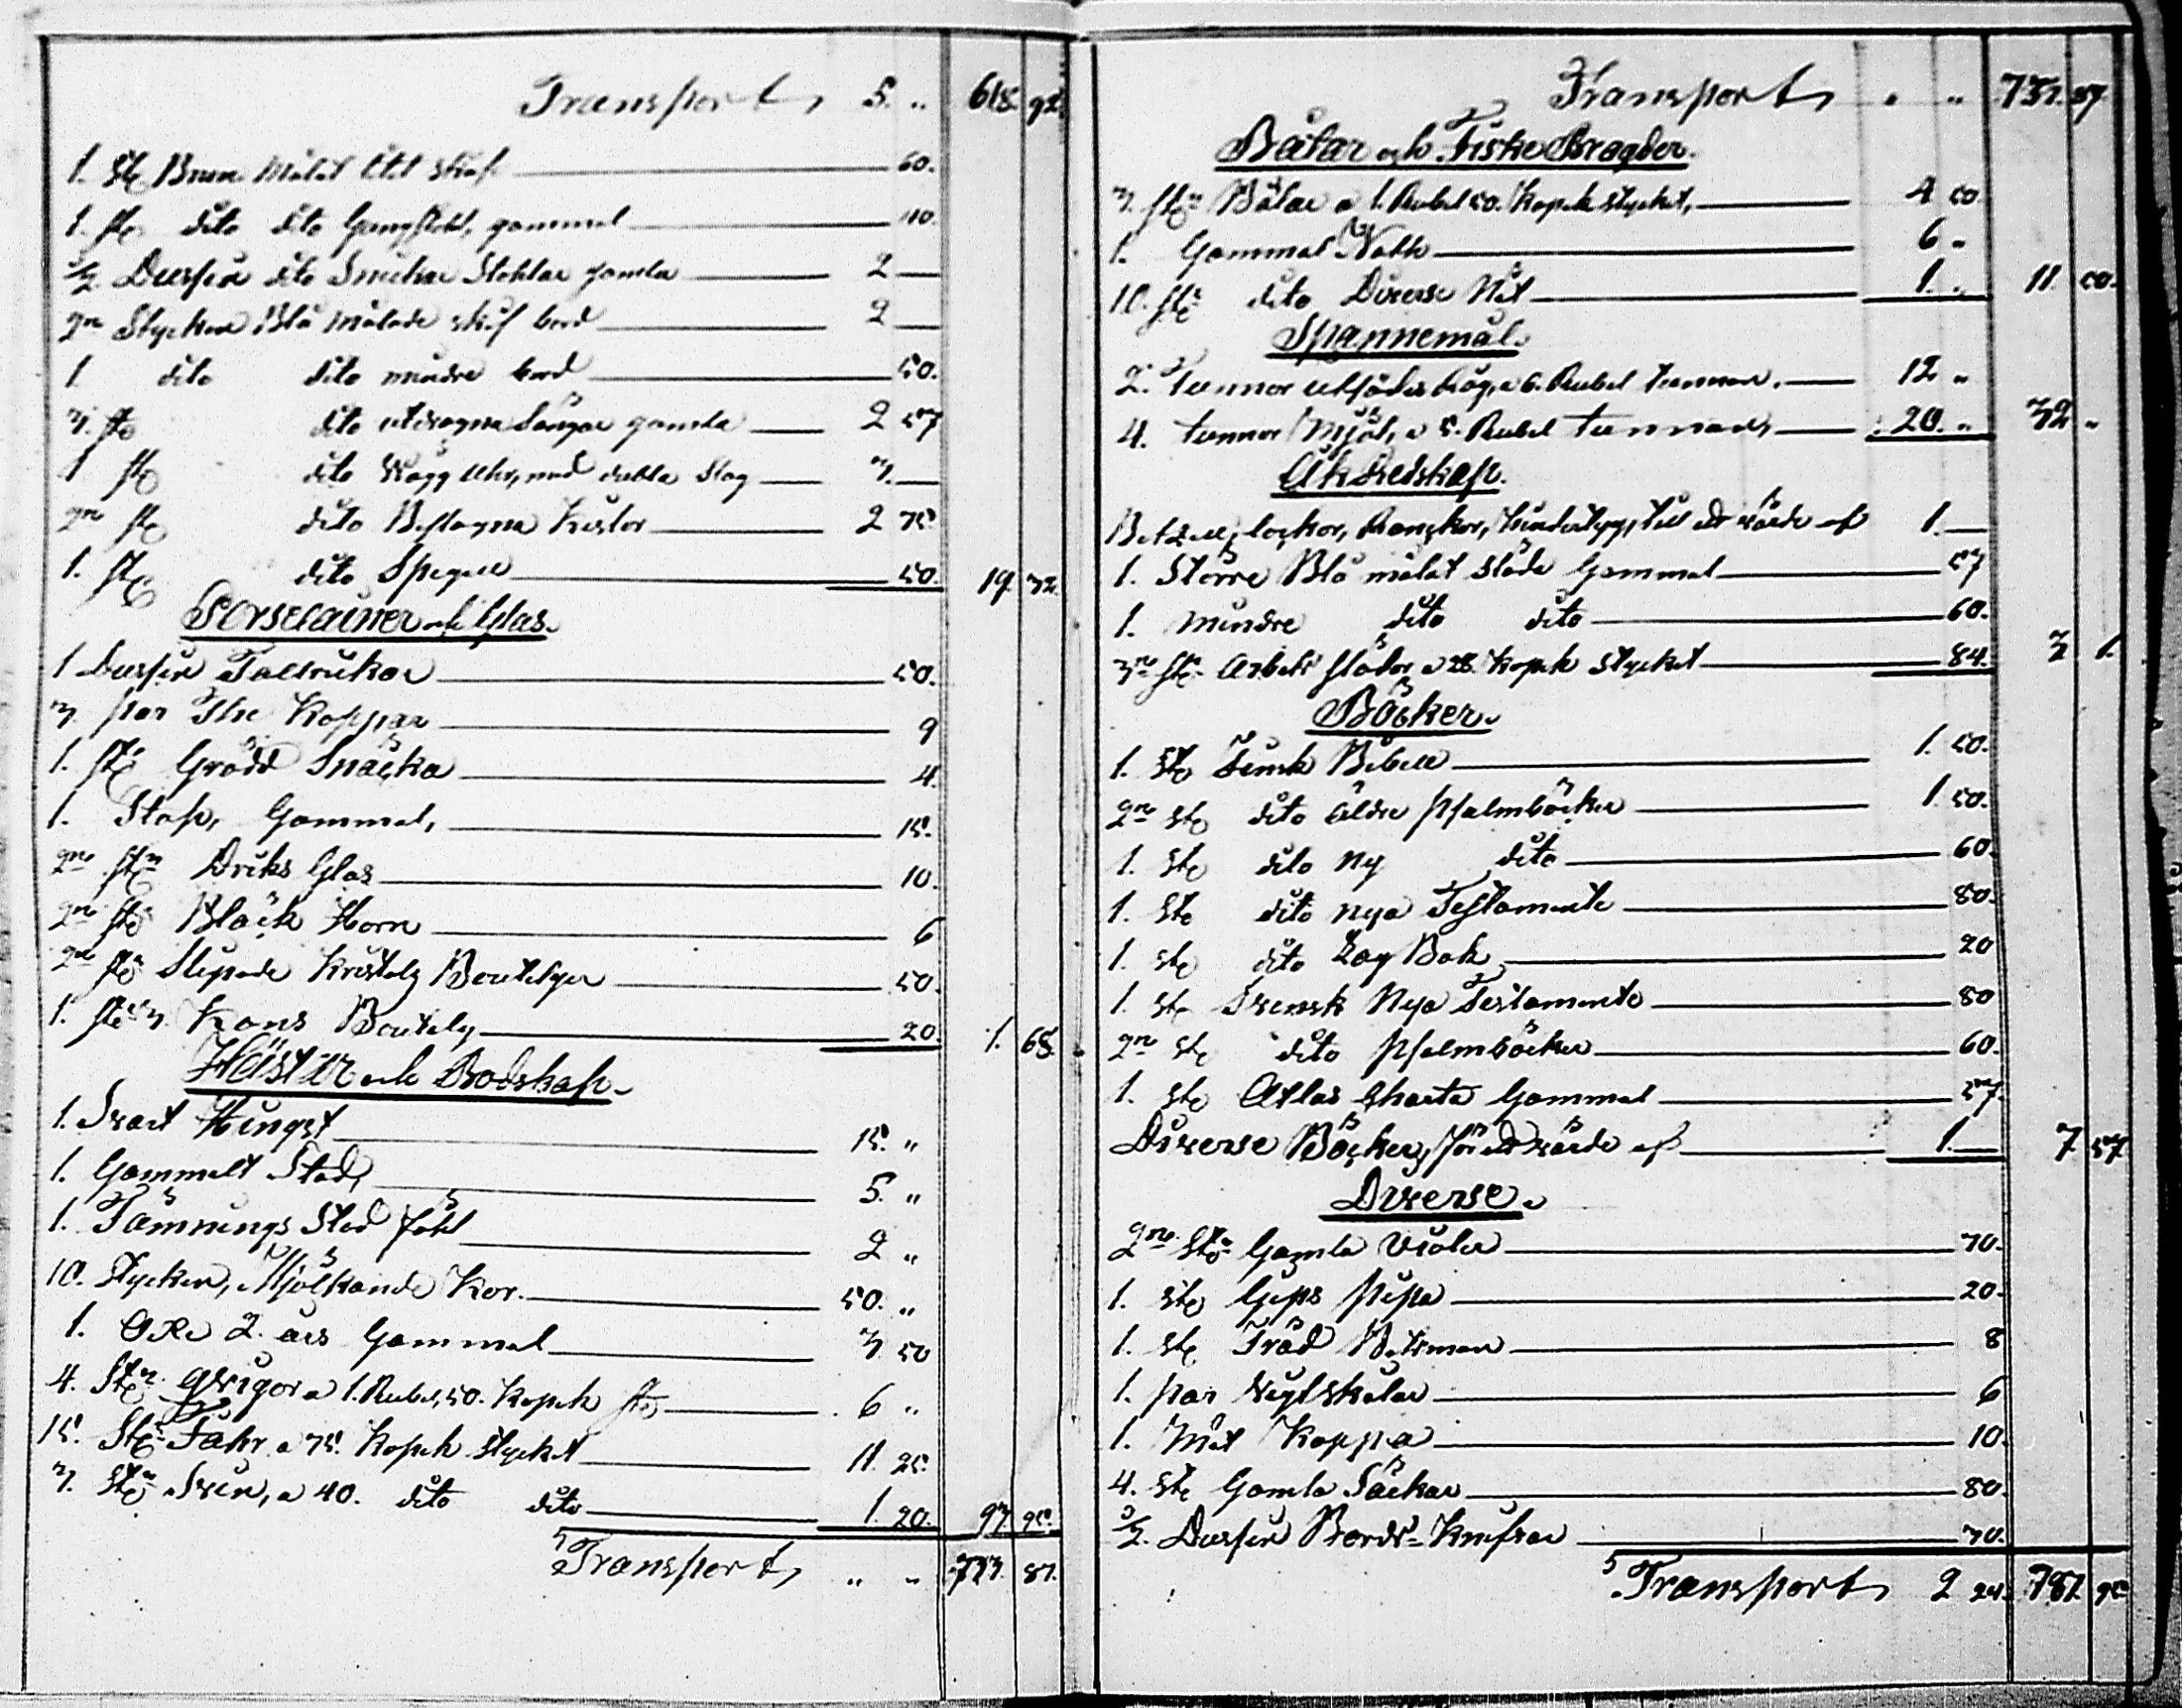 Transport, 5. „ 618. 92.
1. St. Brun Målat Ctel skåp 60.
1. st. dito dito Gungstohl, gammal 40.
1/2 Dussin dito Smiehn Stohlar gamla 2 —
2ne Stycken Blå målade skåf bord 2 —
1 dito dito mindre bord 50.
3. st. dito utdragna Sängar gamla 2 57
1 st. dito Vägg Uhr, med dubla Slag 3. —
2ne st. dito Beslagna Kistor 2 75
1. st. dito Spegell 50. 19. 32.
Porselainer och Glas.
1 Dussin Tallrickar 50.
3. par The Koppar 9
1. st. Grädd Snäcka 4.
1. Stop, Gammal, 15.
2ne stn Driks Glas 10.
2ne st. Bläck Horn 6
2ne st. Slipade Kristalz Bouteljer 50.
1. st. 3. Kans Boutelj 20. 1. 68.
Hästar och Bodskap.
1. Svart Hingst 15. „
1. Gammalt Stod, 5. „
1. Tämnings Stod föhl 2 „
10. Stycken, Mjölkande Kor. 50. „
1. Oxe 2. års Gammal 3 50
4. Stn qvigor a 1. Rubel, 50. Kopek st. 6 „
15. St. Fåhr a 75. Kopek stycket 11. 25.
3. St. Svin, a 40. dito dito 1. 20. 93 95.
Transport, „ „ 733. 87.
Transport, „ „ 733. 87.
Båtar och Fiske Bragder.
3. stn Båtar a 1. Rubel 50. Kopek stycket, 4 50.
1. Gammal Noth 6 „
10. st. dito Diverse Nät 1. „ 11 50.
Spannemål.
2. Tunnor utsädes Råg, a 6. Rubel tunnan. 12 „
4. tunnor Mjöl, a 5. Rubel tunnan, 20. „ 32 „
Åk Redskap.
Betzell, lockor, Ranckor, till ett värde af 1. —
1. Större Blå målat Släde Gammal 57
1. mindre dito dito 60.
3ne st. Arbets slädor a 28. Kopek stycket 84. 3 1.
Böcker.
1. St. Finsk Bibell 1. 50.
2ne st. dito äldre Psalmböcker 1. 50.
1. st. dito Ny dito 60.
1. St. dito nya Testamente 80.
1. st. dito Lag Bok 20
1. st. Svensk Nya Testamente 80
2ne st. dito Psalmböcker 60.
1. st. Atlas Charta Gammal 57.
Diverse Böcker, för ett värde af 1. — 7 57
Diverse.
2ne St. Gamla Violer 70.
1. st. Gips pipa 20.
1. st. Träd Betsman 8
1. par Vigtskålar 6
1. Måt Kappa 10.
4. st. Gamla Säckar 80.
1/2. Dussin Bords-Knifvar 30.
Transport, 2 24. 787. 95